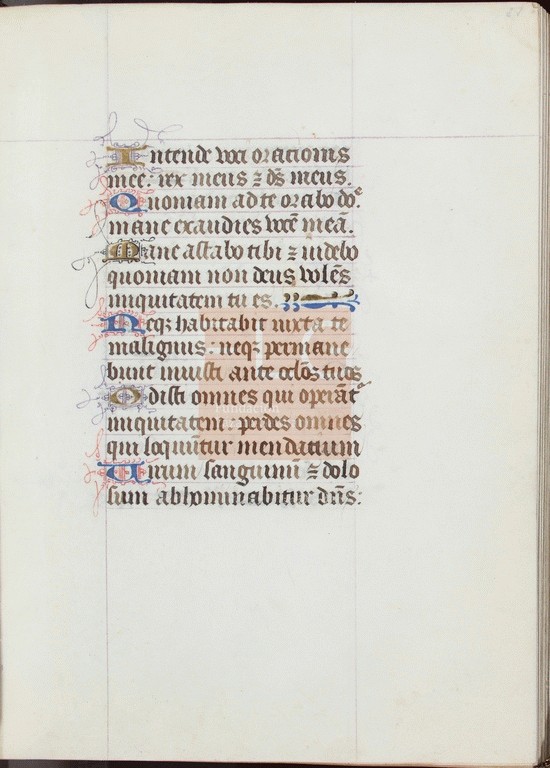 27
Intende voci orationis
mee: rex meus ⁊ ds̄ meus.
Quoniam ad te orabo doᵉ.
mane exaudies vocē meā.
Mane astabo tibi ⁊ uidebo
quoniam non deus volēs
iniquitatem tu es.
Neqꝫ habitabit iuxta te
malignus: neqꝫ permane
bunt iniusti ante ocl̄os tuos
Odisti omnes qui operāt᷑
iniquitatem: ꝑdes omnes
qui loquūtur mendatium
Uirum sanguinū ⁊ dolo
sum abhominabitur dn̄s: